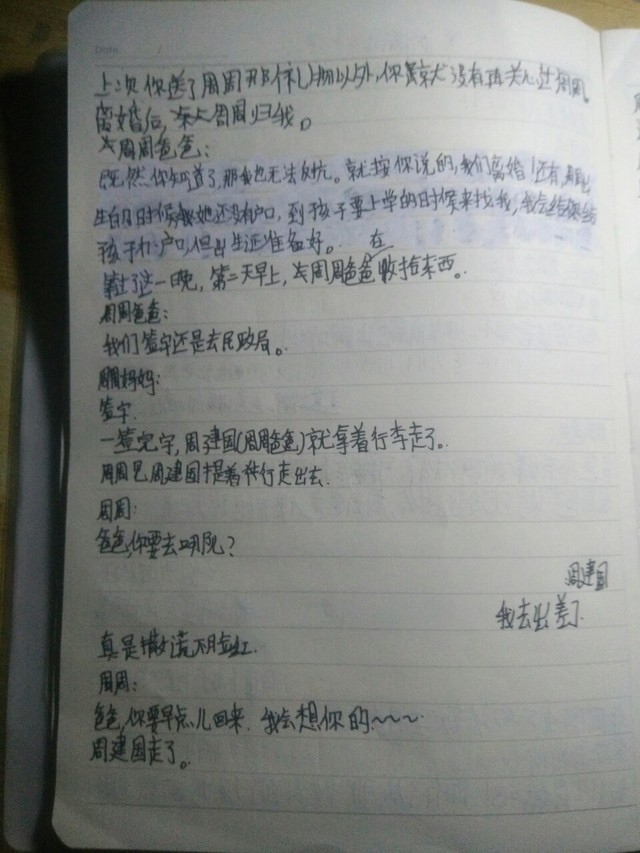 Date /
上次你送了周周那件礼物以外,你竟然没有再关心过周周。
离婚后, 周周归我。
周周爸爸:
既然你知道了,那我也无法反抗。就按你说的,我们离婚!还有,周周出
生的时候她还没有户口,到孩子要上学的时候来找我,我会给
孩子办户口,但出生证准备好。
过了这一晚,第二天早上,周周爸爸在收拾东西。
周周爸爸:
我们签字还是去民政局。
周周妈妈:
签字.
一签完字,周建国(周周爸爸)就拿着行李走了。
周周见周建国提着行走出去.
周周:
爸爸,你要去哪儿?
周建国
我去出差了.
真是撒谎不脸红.
周周:
爸爸,你要早点儿回来. 我会想你的~~~
周建国走了。